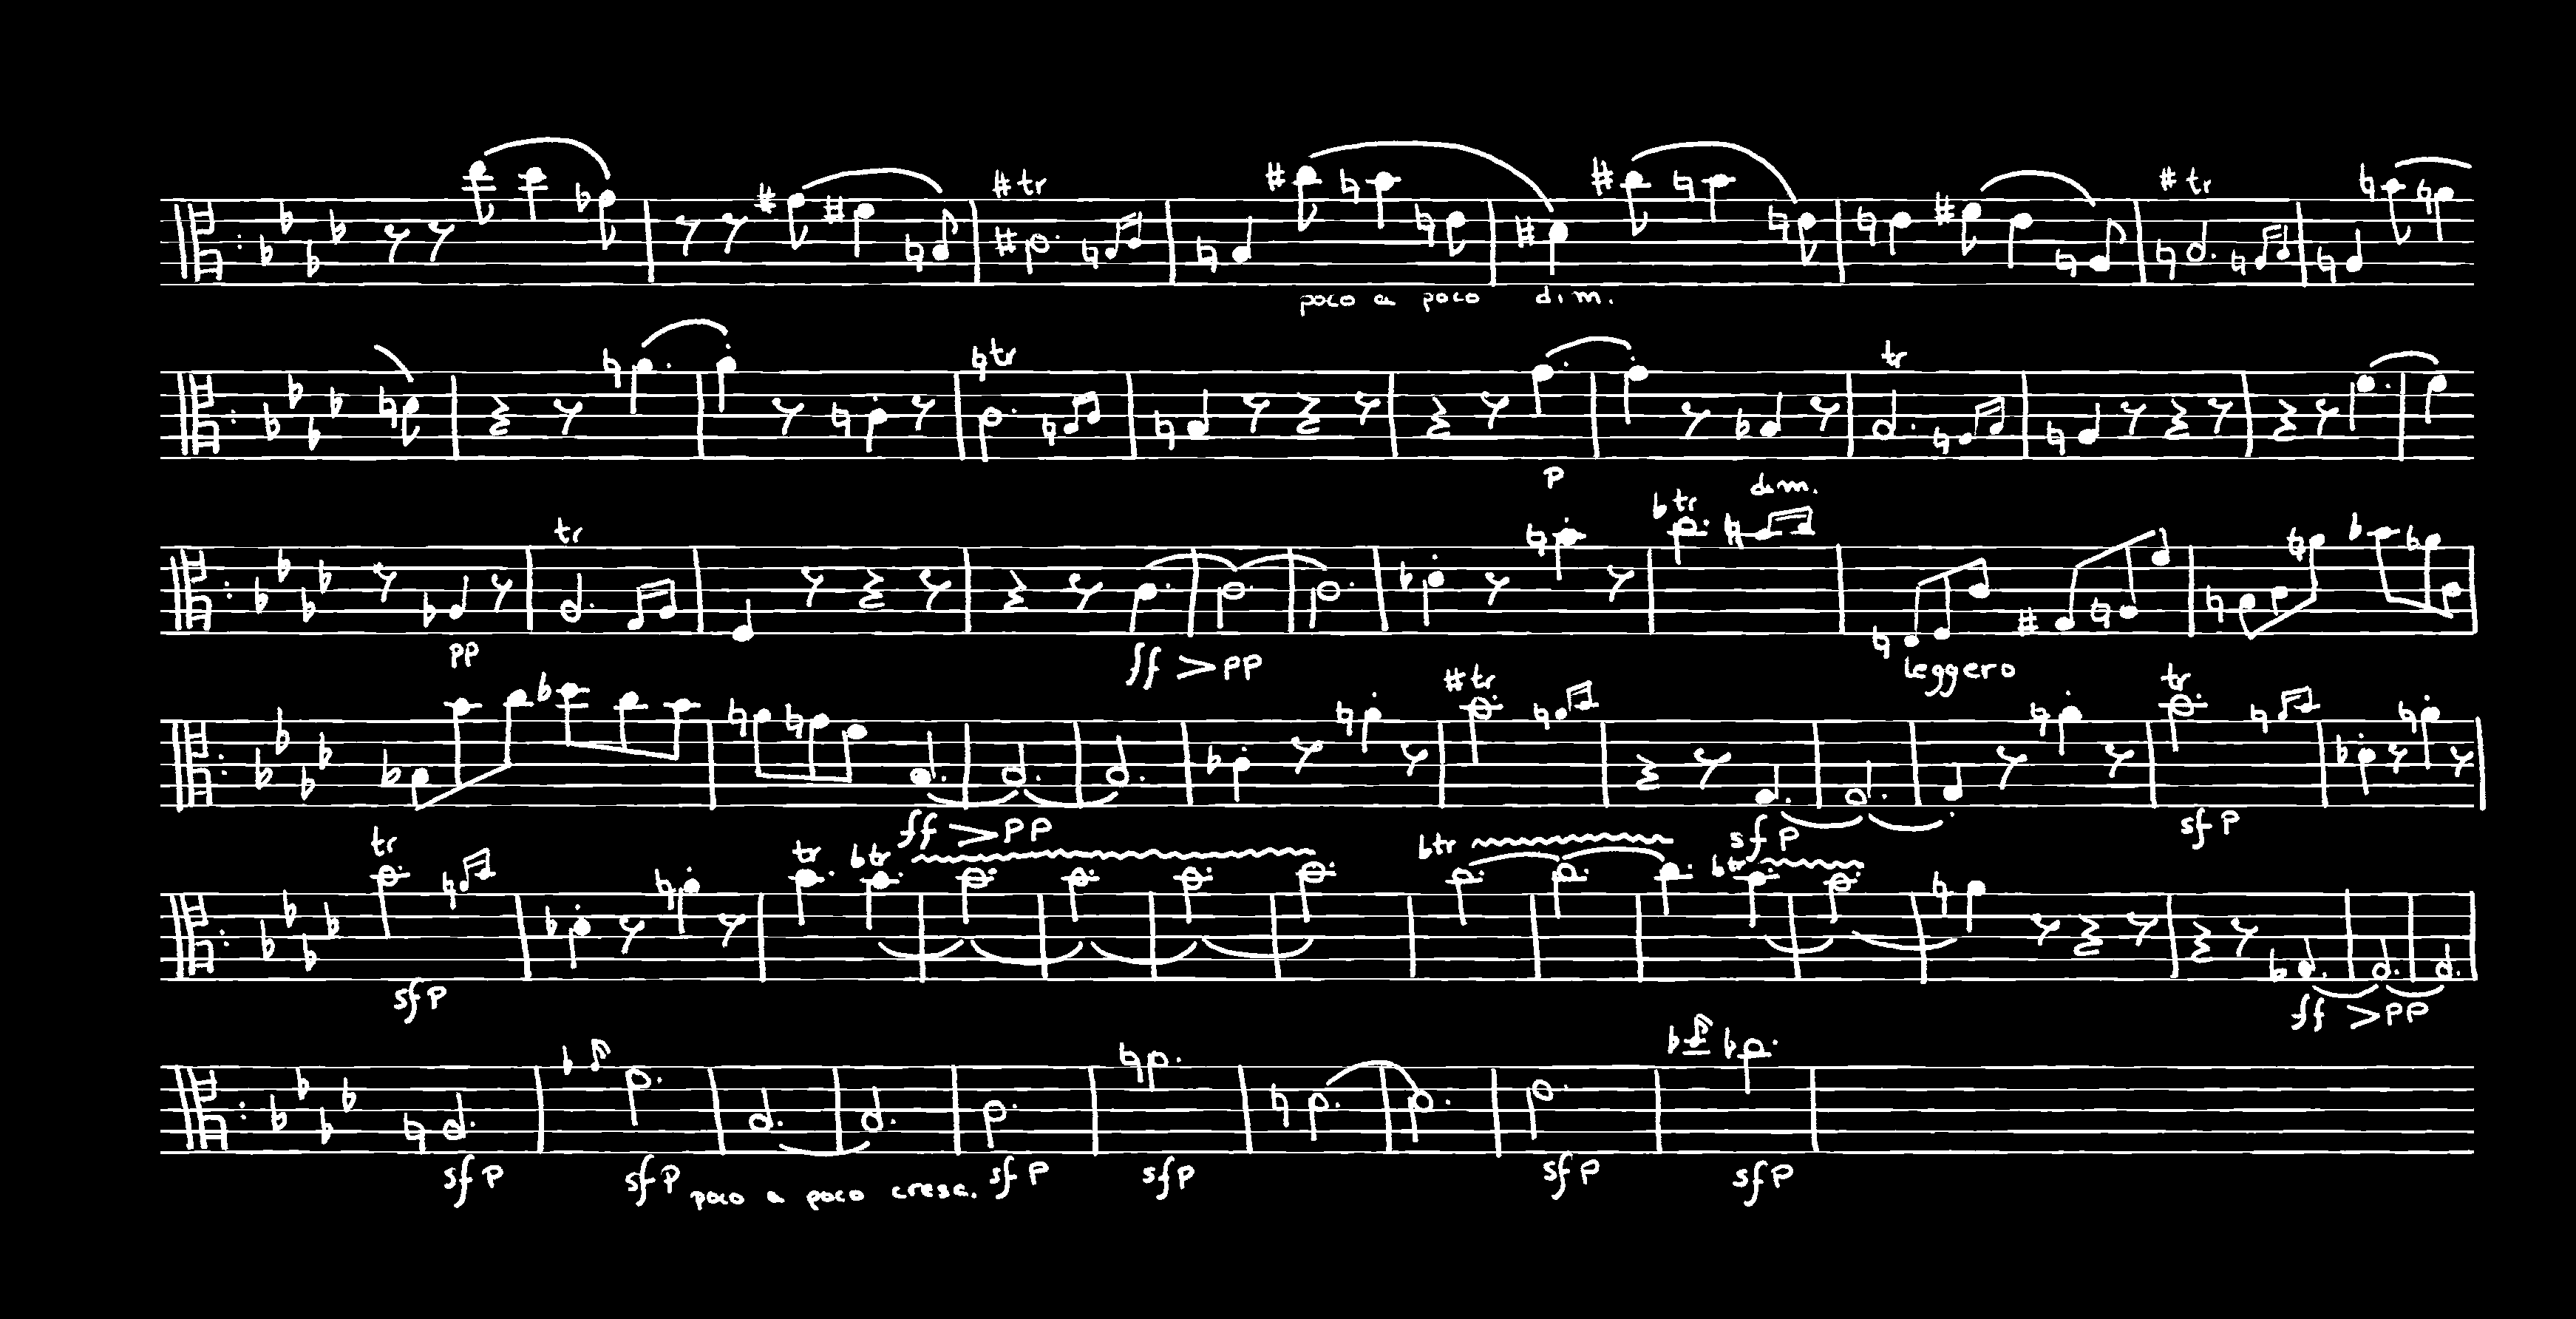 tr tr
poco a poco dim.
tr tr
p
tr tr dim.
pp ff > pp leggero
tr tr
ff > pp sfp sfp
tr tr tr tr tr
sfp ff > pp
sfp sfp poco a poco cresc. sfp sfp sfp sfp